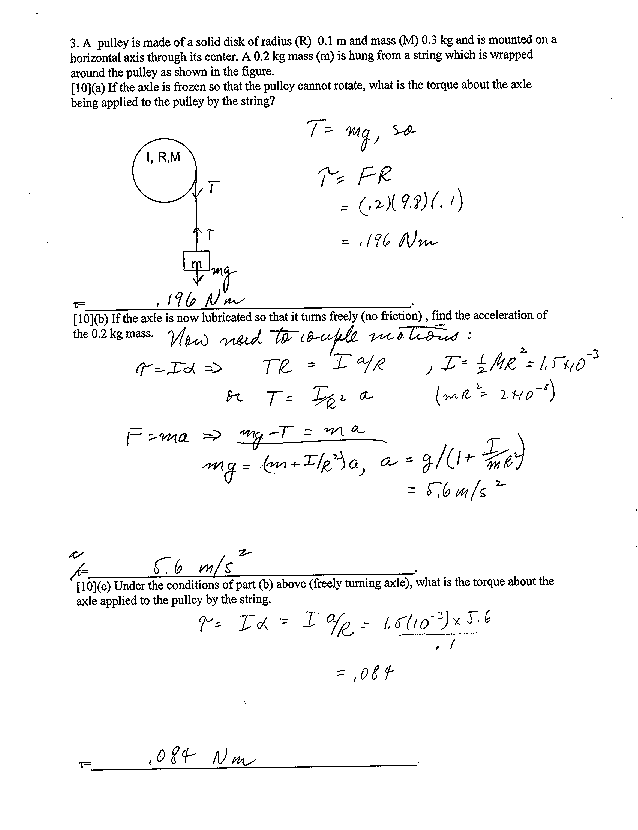 3. A pulley is made of a solid disk of radius (R) 0.1 m and mass (M) 0.3 kg and is mounted on a
horizontal axis through its center. A 0.2 kg mass (m) is hung from a string which is wrapped
around the pulley as shown in the figure.
[10](a) If the axle is frozen so that the pulley cannot rotate, what is the torque about the axle
being applied to the pulley by the string?
T = mg, so
I, R,M
τ = FR
T
= (.2)(9.8)(.1)
T
= .196 Nm
m
mg
τ= .196 Nm.
[10](b) If the axle is now lubricated so that it turns freely (no friction) , find the acceleration of
the 0.2 kg mass. Now need to couple motions :
τ = Iα ⇒ TR = I a/R , I = ½ MR² = 1.5×10⁻³
or T = I/R² a (mR² = 2×10⁻³)
F = ma ⇒ mg - T = ma
mg = (m + I/R²)a, a = g/(1 + I/mR²)
= 5.6 m/s²
a= 5.6 m/s².
[10](c) Under the conditions of part (b) above (freely turning axle), what is the torque about the
axle applied to the pulley by the string.
τ = Iα = I a/R = 1.5(10⁻³) × 5.6
.1
= .084
τ= .084 Nm.